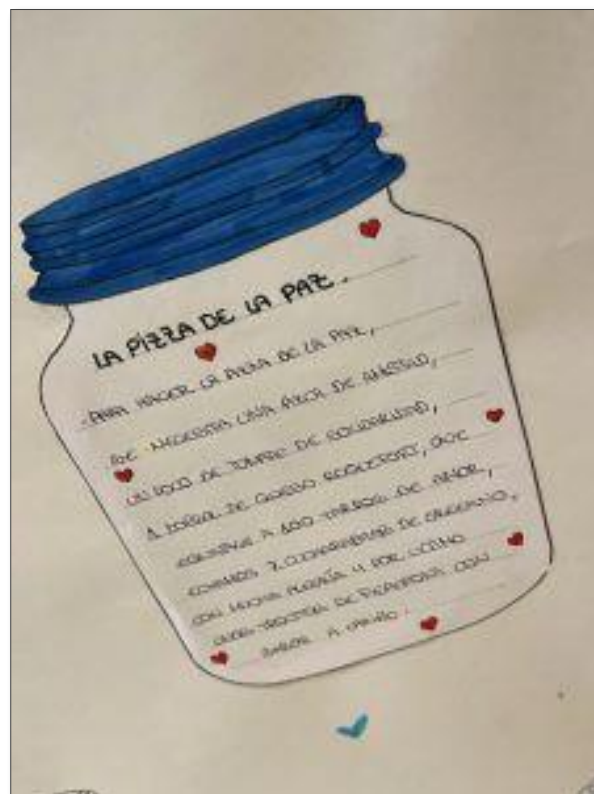 LA PIZZA DE LA PAZ.
PARA HACER LA PIZZA DE LA PAZ,
SE NECESITA UNA PIZCA DE AMISTAD,
UN POCO DE TOMATE DE SOLIDARIDAD,
1 LONCHA DE QUESO ROQUEFORT, QUE
EQUIVALE A 100 TARROS DE AMOR,
ECHAMOS 2 CUCHARADITAS DE ORÉGANO,
CON MUCHA ALEGRÍA Y POR ÚLTIMO
UNOS TROCITOS DE PEPERONI CON
SABOR A CARIÑO.